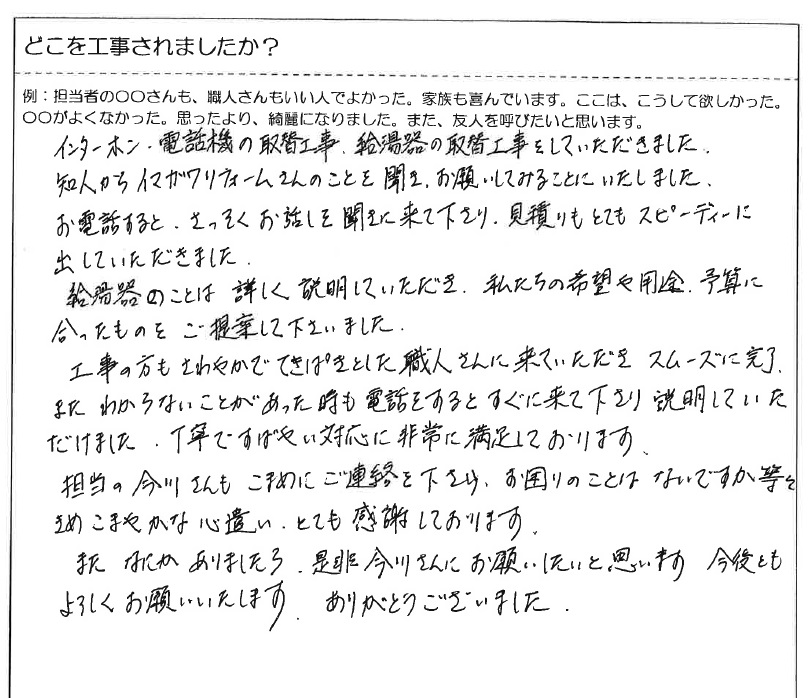 どこを工事されましたか？
例：担当者の〇〇さんも、職人さんもいい人でよかった。家族も喜んでいます。ここは、こうして欲しかった。
〇〇がよくなかった。思ったより、綺麗になりました。また、友人を呼びたいと思います。
インターホン・電話機の取替工事、給湯器の取替工事をしていただきました。
知人からイマガワリフォームさんのことを聞き、お願いしてみることにいたしました。
お電話すると、さっそくお話しを聞きに来て下さり、見積りもとてもスピーディーに
出していただきました。
給湯器のことは詳しく説明していただき、私たちの希望や用途、予算に
合ったものをご提案して下さいました。
工事の方もさわやかでてきぱきとした職人さんに来ていただきスムーズに完了、
またわからないことがあった時も電話をするとすぐに来て下さり説明していた
だけました。丁寧ですばやい対応に非常に満足しております。
担当の今川さんもこまめにご連絡を下さり、お困りのことはないですか等々
きめこまやかな心遣い、とても感謝しております。
またなにかありましたら、是非今川さんにお願いしたいと思います 今後とも
よろしくお願いいたします。ありがとうございました。